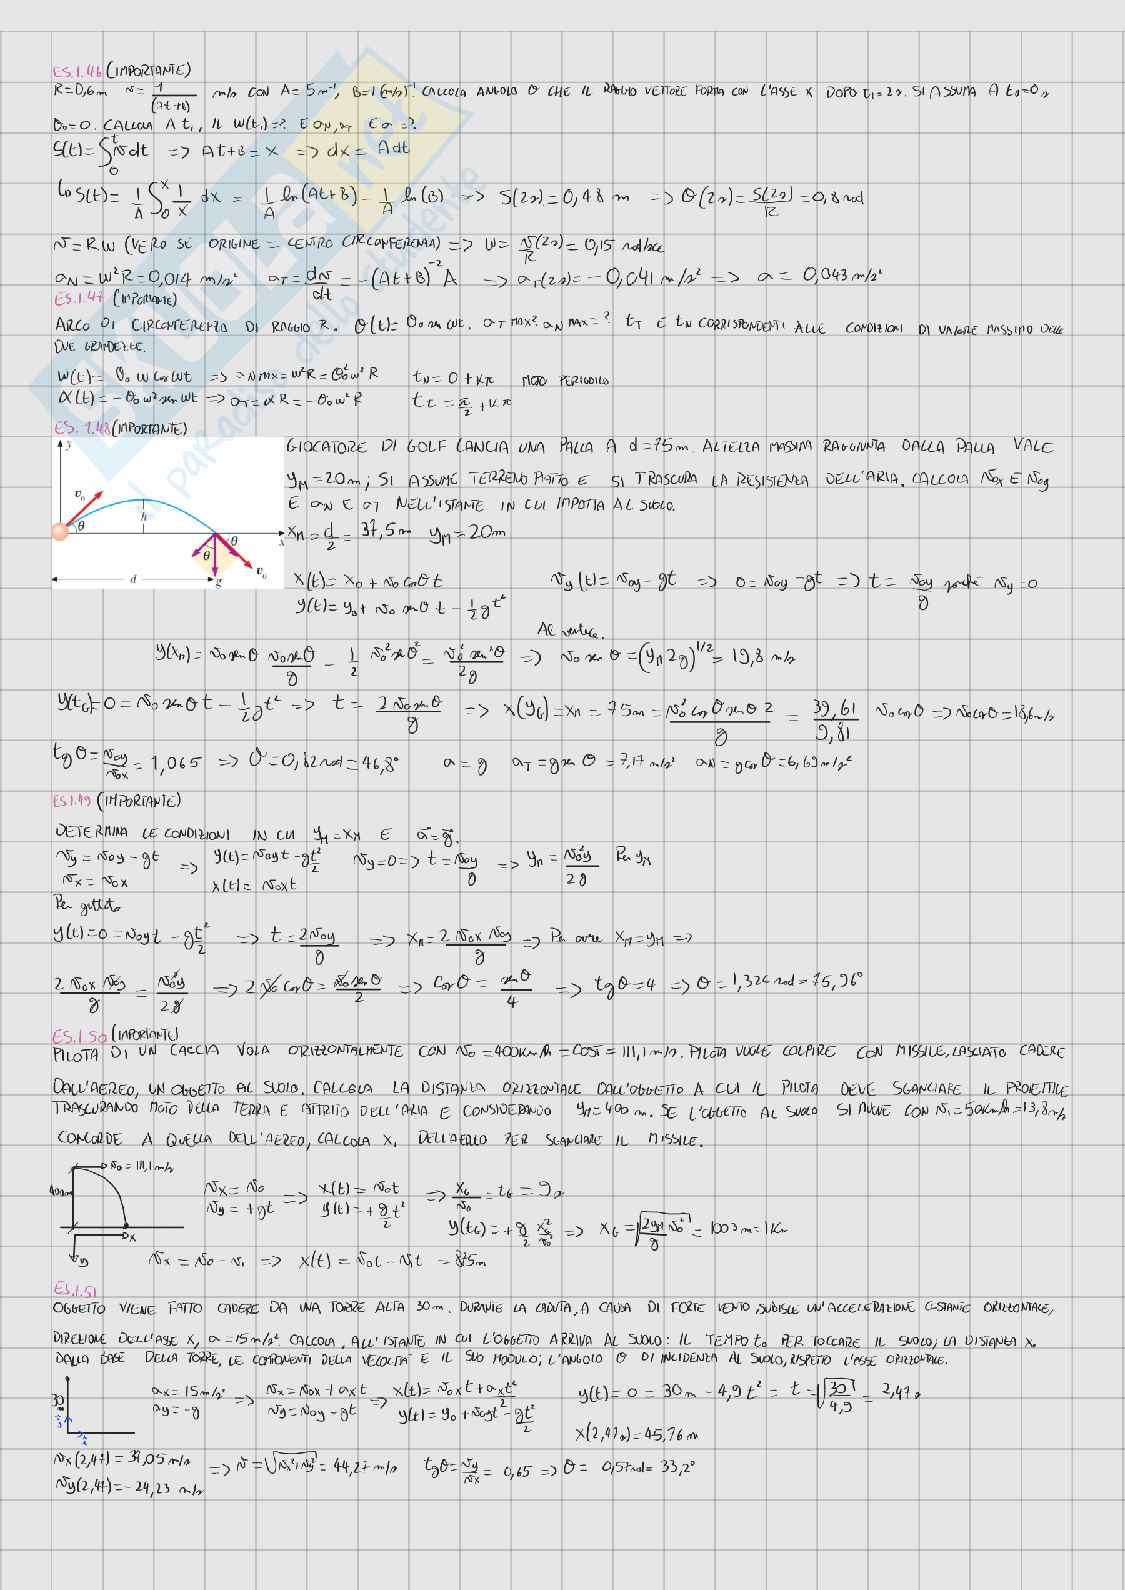 ES.1.46 (IMPORTANTE)
R=0,6m v=1/(At+B) m/s CON A=5m⁻¹, B=1(m/s)⁻¹. CALCOLA ANGOLO θ CHE IL RAGGIO VETTORE FORMA CON L'ASSE X DOPO t₁=2s. SI ASSUMA A t₀=0s
θ₀=0. CALCOLA A t₁, IL W(t₁)=? E aN, aT E a=?
S(t)=∫₀ᵗ v dt => At+B=X => dX=Adt
Lo S(t)=1/A ∫₀ˣ 1/X dx = 1/A ln(At+B) - 1/A ln(B) => S(2s)=0,48 m => θ(2s)=S(2s)/R=0,8 rad
v=RW (VERO SE ORIGINE = CENTRO CIRCONFERENZA) => W=v(2s)/R=0,15 rad/sec
aN=W²R=0,014 m/s² aT=dv/dt=-(At+B)⁻²A => aT(2s)=-0,041 m/s² => a=0,043 m/s²
ES.1.47 (IMPORTANTE)
ARCO DI CIRCONFERENZA DI RAGGIO R. θ(t)=θ₀ sen wt. aT MAX? aN MAX=? tT E tN CORRISPONDENTI ALLE CONDIZIONI DI VALORE MASSIMO DELLE
DUE GRANDEZZE.
W(t)=θ₀ w cos wt => aN MAX=w²R=θ₀²w²R tN=0+kπ MOTO PERIODICO
α(t)=-θ₀w² sen wt => aT=αR=-θ₀w²R tt=π/2+kπ
ES. 1.48 (IMPORTANTE)
GIOCATORE DI GOLF LANCIA UNA PALLA A d=75m. ALTEZZA MASSIMA RAGGIUNTA DALLA PALLA VALE
yM=20m; SI ASSUME TERRENO PIATTO E SI TRASCURA LA RESISTENZA DELL'ARIA. CALCOLA v₀x E v₀y
E aN E aT NELL'ISTANTE IN CUI IMPATTA AL SUOLO.
y v₀ θ h x θ θ v₀ d g
xM=d/2=37,5m yM=20m
x(t)=x₀+v₀cosθt vy(t)=v₀y-gt => 0=v₀y-gt => t=v₀y/g poiché vy=0
y(t)=y₀+v₀senθt-1/2gt²
Al vertice.
y(xM)=v₀senθ v₀senθ/g - 1/2 v₀²senθ²=v₀²sen²θ/2g => v₀senθ=(yM2g)^1/2=19,8 m/s
y(tG)=0=v₀senθt-1/2gt² => t=2v₀senθ/g => x(yG)=xM=75m=v₀²cosθsenθ2/g=39,61/9,81 v₀cosθ => v₀cosθ=18,6m/s
tgθ=v₀y/v₀x=1,065 => θ=0,82 rad=46,8° a=g aT=gsenθ=7,17 m/s² aN=gcosθ=6,69m/s²
ES.1.49 (IMPORTANTE)
DETERMINA LE CONDIZIONI IN CUI yM=xM E a=g.
vy=v₀y-gt => y(t)=v₀yt-gt²/2 vy=0 => t=v₀y/g => yM=v₀²y/2g Per yM
vx=v₀x x(t)=v₀xt
Per gittata
y(t)=0=v₀yt-gt²/2 => t=2v₀y/g => xM=2v₀xv₀y/g => Per avere xM=yM =>
2v₀xv₀y/g=v₀²y/2g => 2v₀cosθ=v₀senθ/2 => cosθ=senθ/4 => tgθ=4 => θ=1,326 rad=75,96°
ES.1.50 (IMPORTANTE)
PILOTA DI UN CACCIA VOLA ORIZZONTALMENTE CON v₀=400Km/h=COST=111,1m/s. PILOTA VUOLE COLPIRE CON MISSILE, LASCIATO CADERE
DALL'AEREO, UN OGGETTO AL SUOLO. CALCOLA LA DISTANZA ORIZZONTALE DALL'OGGETTO A CUI IL PILOTA DEVE SGANCIARE IL PROIETTILE
TRASCURANDO MOTO DELLA TERRA E ATTRITO DELL'ARIA E CONSIDERANDO yM=400m. SE L'OGGETTO AL SUOLO SI MUOVE CON v₁=50Km/h=13,8m/s
CONCORDE A QUELLA DELL'AEREO, CALCOLA X, DELL'AEREO PER SGANCIARE IL MISSILE.
v₀=111,1m/s
400m
x
y
vx=v₀ => x(t)=v₀t => xG/v₀=tG=9s
vy=+gt y(t)=+g/2t²
y(tG)=+g/2 xG²/v₀² => xG=√(2yMv₀²/g)=1003m=1Km
vx=v₀-v₁ => x(t)=v₀t-v₁t=875m
ES.1.51
OGGETTO VIENE FATTO CADERE DA UNA TORRE ALTA 30m. DURANTE LA CADUTA, A CAUSA DI FORTE VENTO, SUBISCE UN'ACCELERAZIONE COSTANTE ORIZZONTALE,
DIREZIONE DELL'ASSE X, a=15m/s². CALCOLA, ALL'ISTANTE IN CUI L'OGGETTO ARRIVA AL SUOLO: IL TEMPO t₀ PER TOCCARE IL SUOLO; LA DISTANZA X₀
DALLA BASE DELLA TORRE, LE COMPONENTI DELLA VELOCITÀ E IL SUO MODULO; L'ANGOLO θ DI INCIDENZA AL SUOLO, RISPETTO L'ASSE ORIZZONTALE.
30m
ax=15m/s² => vx=v₀x+axt => x(t)=v₀xt+axt²/2 y(t)=0=30m-4,9t²=t=√(30/4,9)=2,47s
ay=-g vy=v₀y-gt y(t)=y₀+v₀yt-gt²/2
x(2,47s)=45,76m
vx(2,47)=37,05m/s => v=√(vx²+vy²)=44,27m/s tgθ=vy/vx=0,65 => θ=0,57rad=33,2°
vy(2,47)=-24,23 m/s